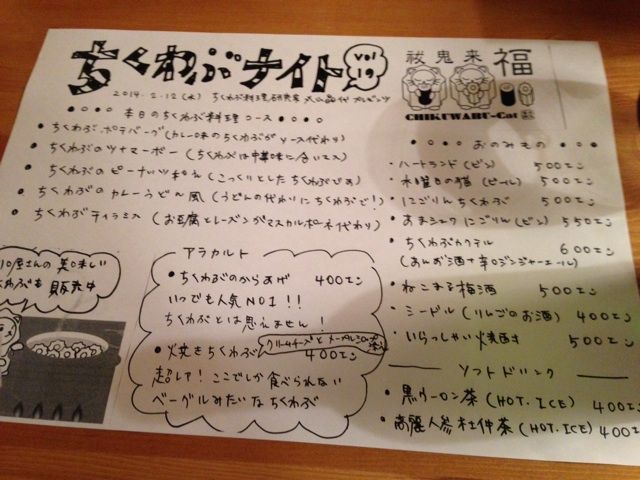 ちくわぶナイト vol 19
2014.2.12(水) ちくわぶ料理研究家 丸山晶代プレゼンツ
祓鬼来福
CHIKUWABU-Cat
本日のちくわぶ料理コース
・ちくわぶポテバーグ(カレー味のちくわぶがソース代わり)
・ちくわぶのツナマーボー(ちくわぶは中華味に合いマス)
・ちくわぶのピーナッツ和え(こっくりとしたちくわぶです)
・ちくわぶのカレーうどん風(うどんの代わりにちくわぶで!)
・ちくわぶティラミス(お豆腐とレーズンがマスカルポーネ代わり)
屋さんの美味しい
わぶを販売中
アラカルト
・ちくわぶのからあげ 400エン
いつでも人気NO1!!
ちくわぶとは思えません!
・焼きちくわぶ クリームチーズとメープルシロップ添え
400エン
超レア!ここでしか食べられない
ベーグルみたいなちくわぶ
おのみもの
・ハートランド(ビン) 500エン
・水曜日の猫(ビール) 500エン
・にごりんちくわぶ 500エン
・あまシュワにごりん(ビン) 550エン
・ちくわぶカクテル 600エン
(あんず酒+辛口ジンジャーエール)
・ねこまる梅酒 500エン
・シードル(リンゴのお酒) 400エン
・いらっしゃい焼酎 500エン
ソフトドリンク
・黒ウーロン茶(HOT.ICE) 400エン
・高麗人参杜仲茶(HOT.ICE) 400エン